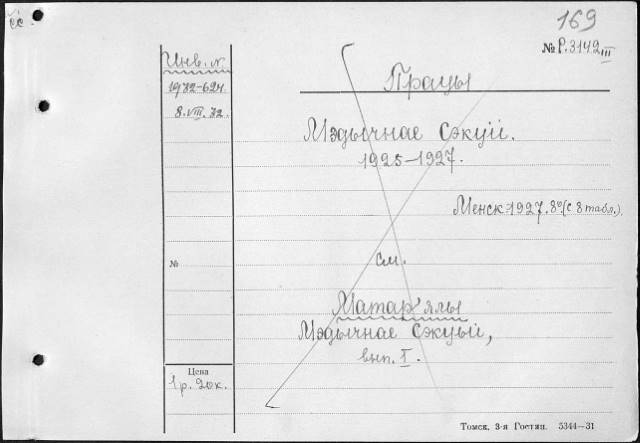 169
№ Р.3142 III
Инв. №
1972-624
8.VIII.72.
Працы
Мэдычнае Сэкцыі.
1925-1927.
Менск 1927. 8° (с 8 табл.).
№
см.
Матар'ялы
Мэдычнае Сэкцыі,
вып. I.
Цена
1 р. 20 к.
Томск, 3-я Гостип. 5344—31